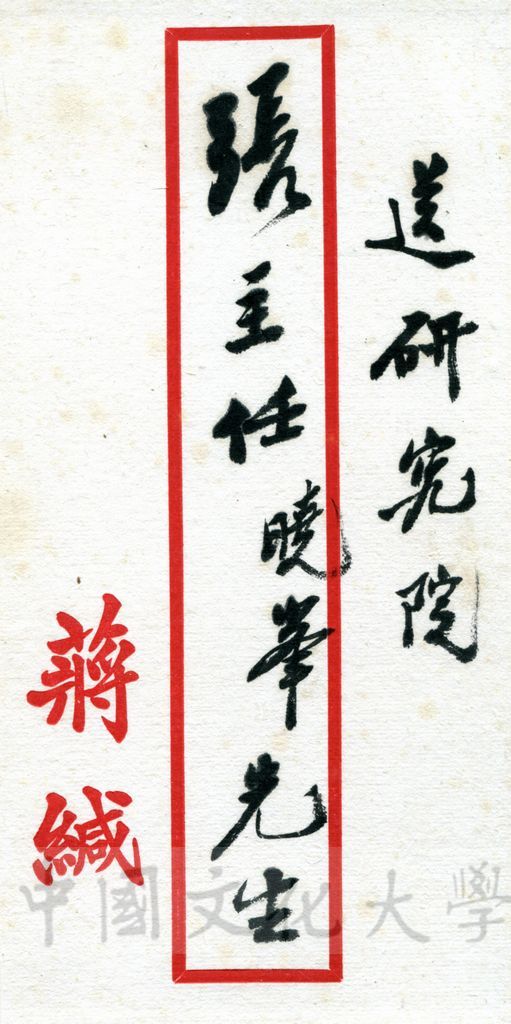 送研究院
張主任曉峯先生
蔣緘
中國文化大學